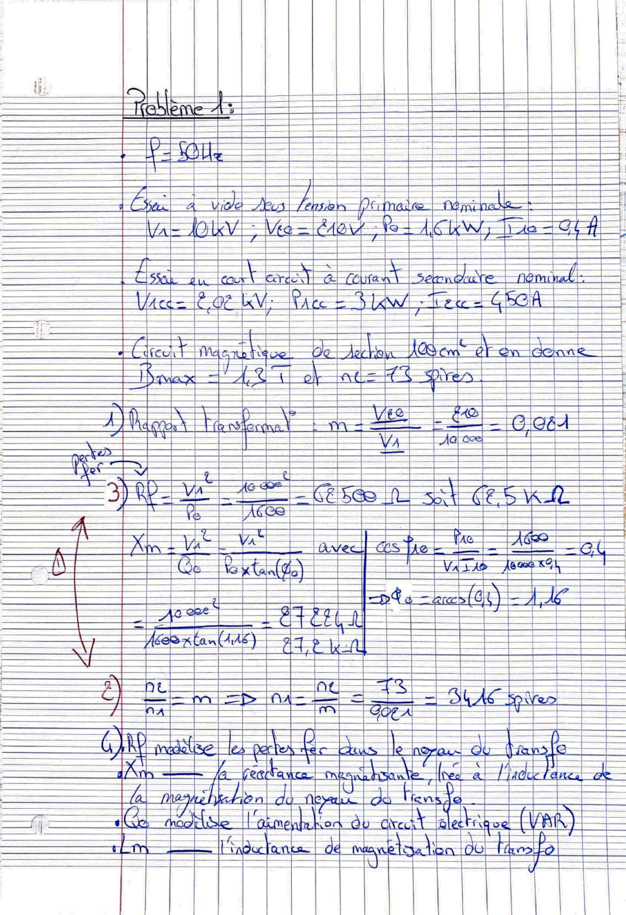 Problème 1:
• f = 50Hz
• Essai à vide sous tension primaire nominale:
V1 = 10KV ; V20 = 210V ; P0 = 1,6 KW ; I10 = 0,4 A
• Essai en court circuit à courant secondaire nominal:
V1cc = 2,02 KV; P1cc = 3 KW, I2cc = 450A
• Circuit magnétique de section 100cm² et on donne
Bmax = 1,3 T et n2 = 73 spires.
1) Rapport transformat° : m = V20/V1 = 210/10 000 = 0,021
pertes fer →
3) Rf = V1²/P0 = 10 000²/1600 = 62 500 Ω soit 62,5 KΩ
Xm = V1²/Q0 = V1²/P0×tan(φ0) avec | cos φ10 = P10/V1 I10 = 1600/10000×0,4 = 0,4
=> φ0 = arccos(0,4) = 1,16
= 10 000²/1600×tan(1,16) = 27 224 Ω
27,2 KΩ
2) n2/n1 = m => n1 = n2/m = 73/0,021 = 3416 spires
4) • Rf modélise les pertes fer dans le noyau du transfo
• Xm — la réactance magnétisante, liée à l'inductance de
la magnétisation du noyau du transfo.
• Q0 modélise l'aimentation du circuit électrique (VAR)
• Lm — l'inductance de magnétisation du transfo